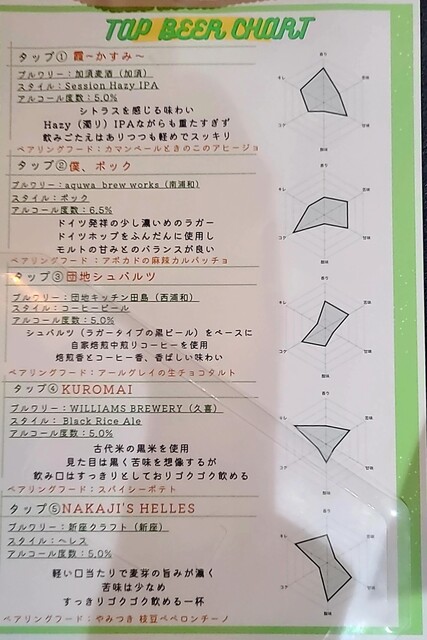 TAP BEER CHART
タップ① 霞~かすみ~
ブルワリー:加須麦酒(加須)
スタイル:Session Hazy IPA
アルコール度数:5.0%
シトラスを感じる味わい
Hazy(濁り)IPAながらも重たすぎず
飲みごたえはありつつも軽めでスッキリ
ペアリングフード:カマンベールときのこのアヒージョ
香り
キレ
苦味
コク
甘味
酸味
タップ② 僕、ボック
ブルワリー:aquwa brew works(南浦和)
スタイル:ボック
アルコール度数:6.5%
ドイツ発祥の少し濃いめのラガー
ドイツホップをふんだんに使用し
モルトの甘みとのバランスが良い
ペアリングフード:アボカドの麻辣カルパッチョ
香り
キレ
苦味
コク
甘味
酸味
タップ③ 団地シュバルツ
ブルワリー:団地キッチン田島(西浦和)
スタイル:コーヒービール
アルコール度数:5.0%
シュバルツ(ラガータイプの黒ビール)をベースに
自家焙煎中煎りコーヒーを使用
焙煎香とコーヒー香、香ばしい味わい
ペアリングフード:アールグレイの生チョコタルト
香り
キレ
苦味
コク
甘味
酸味
タップ④ KUROMAI
ブルワリー:WILLIAMS BREWERY(久喜)
スタイル:Black Rice Ale
アルコール度数:5.0%
古代米の黒米を使用
見た目は黒く苦味を想像するが
飲み口はすっきりとしておりゴクゴク飲める
ペアリングフード:スパイシーポテト
香り
キレ
苦味
コク
甘味
酸味
タップ⑤ NAKAJI'S HELLES
ブルワリー:新座クラフト(新座)
スタイル:ヘレス
アルコール度数:5.0%
軽い口当たりで麦芽の旨みが濃く
苦味は少なめ
すっきりゴクゴク飲める一杯
ペアリングフード:やみつき 枝豆ペペロンチーノ
香り
キレ
苦味
コク
甘味
酸味